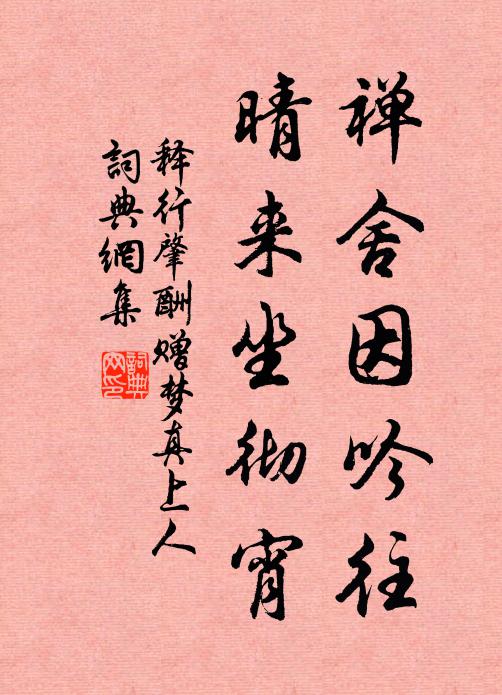 禅舍因吟往
晴来坐彻宵
释行肇酬赠梦真上人
詞典網集
詞典網印